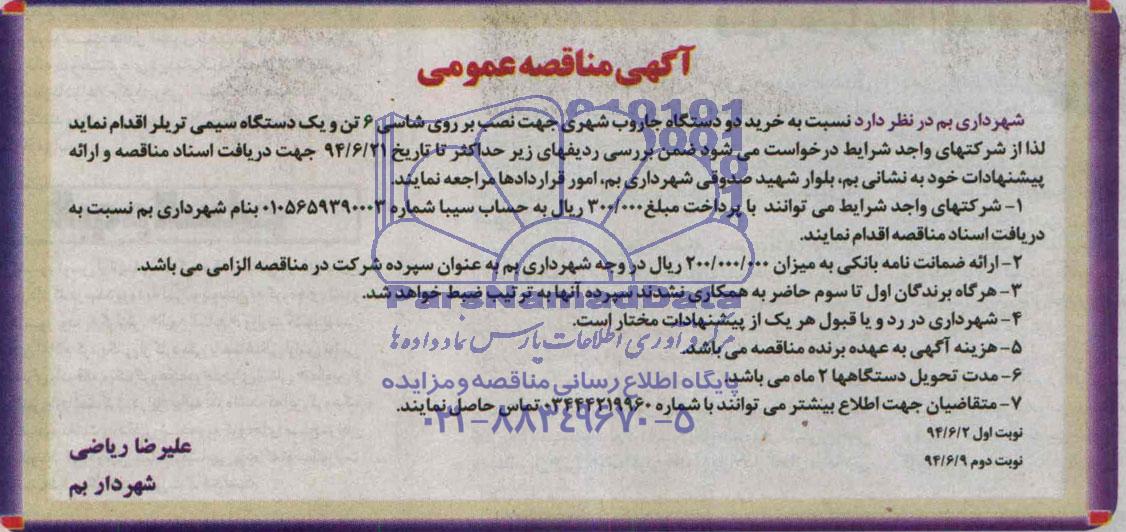 آگهی مناقصه عمومی
شهرداری بم در نظر دارد نسبت به خرید دو دستگاه جاروب شهری جهت نصب بر روی شاسی ۶ تن و یک دستگاه سیمی تریلر اقدام نماید
لذا از شرکتهای واجد شرایط درخواست می شود ضمن بررسی ردیفهای زیر حداکثر تا تاریخ ۹۴/۶/۲۱ جهت دریافت اسناد مناقصه و ارائه
پیشنهادات خود به نشانی بم، بلوار شهید صدوقی شهرداری بم، امور قراردادها مراجعه نمایند.
۱- شرکتهای واجد شرایط می توانند با پرداخت مبلغ ۳۰۰/۰۰۰ ریال به حساب سیبا شماره ۰۱۰۵۶۵۹۳۹۰۰۰۳ بنام شهرداری بم نسبت به
دریافت اسناد مناقصه اقدام نمایند.
۲- ارائه ضمانت نامه بانکی به میزان ۲۰۰/۰۰۰/۰۰۰ ریال در وجه شهرداری بم به عنوان سپرده شرکت در مناقصه الزامی می باشد.
۳- هرگاه برندگان اول تا سوم حاضر به همکاری نشدند سپرده آنها به ترتیب ضبط خواهد شد.
۴- شهرداری در رد و یا قبول هر یک از پیشنهادات مختار است.
۵- هزینه آگهی به عهده برنده مناقصه می باشد.
۶- مدت تحویل دستگاهها ۲ ماه می باشد.
۷- متقاضیان جهت اطلاع بیشتر می توانند با شماره ۰۳۴۴۴۲۱۹۹۶۰ تماس حاصل نمایند.
نوبت اول ۹۴/۶/۲
نوبت دوم ۹۴/۶/۹
علیرضا ریاضی
شهردار بم
ParsNamadData
گردآوری اطلاعات پارس نماد داده ها
پایگاه اطلاع رسانی مناقصه و مزایده
۰۲۱-۸۸۳۴۹۶۷۰-۵